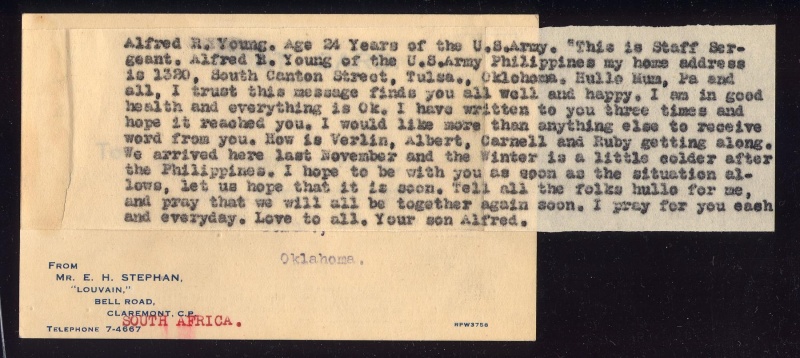 Alfred R. Young. Age 24 Years of the U.S.Army. "This is Staff Ser-
geant. Alfred R. Young of the U.S.Army Philippines my home address
is 1320, South Canton Street, Tulsa., Oklohoma. Hullo Mum, Pa and
all, I trust this message finds you all well and happy. I am in good
health and everything is Ok. I have written to you three times and
hope it reached you. I would like more than anything else to receive
word from you. How is Verlin, Albert, Carnell and Ruby getting along.
We arrived here last November and the Winter is a little colder after
the Philippines. I hope to be with you as soon as the situation al-
lows, let us hope that it is soon. Tell all the folks hullo for me,
and pray that we will all be together again soon. I pray for you each
and everyday. Love to all. Your son Alfred.
Oklahoma.
FROM
MR. E. H. STEPHAN,
"LOUVAIN,"
BELL ROAD,
CLAREMONT, C.P.
SOUTH AFRICA.
TELEPHONE 7-4667
RPW3756